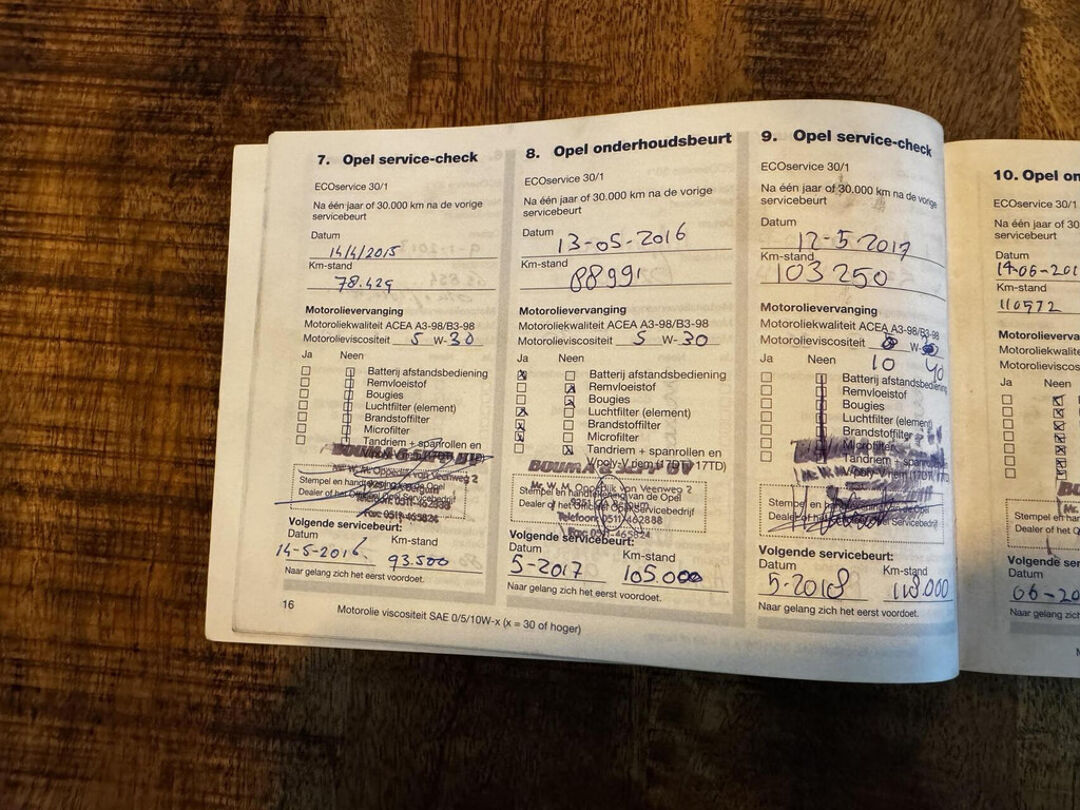 7. Opel service-check
ECOservice 30/1
Na één jaar of 30.000 km na de vorige
servicebeurt
Datum
14/4/2015
Km-stand
78.429
Motorolievervanging
Motoroliekwaliteit ACEA A3-98/B3-98
Motorolieviscositeit 5 W-30
Ja Neen
Batterij afstandsbediening
Remvloeistof
Bougies
Luchtfilter (element)
Brandstoffilter
Microfilter
Tandriem + spanrollen en
Mr. W. M. Oppedijk van Veenweg 2
Stempel en handtekening van de Opel
Dealer of het Officieel Opel Servicebedrijf
Fax: 0511-465824
Volgende servicebeurt:
Datum Km-stand
14-5-2016. 93.500
Naar gelang zich het eerst voordoet.
16 Motorolie viscositeit SAE 0/5/10W-x (x = 30 of hoger)
8. Opel onderhoudsbeurt
ECOservice 30/1
Na één jaar of 30.000 km na de vorige
servicebeurt
Datum
13-05-2016
Km-stand
88991
Motorolievervanging
Motoroliekwaliteit ACEA A3-98/B3-98
Motorolieviscositeit 5 W-30
Ja Neen
Batterij afstandsbediening
Remvloeistof
Bougies
Luchtfilter (element)
Brandstoffilter
Microfilter
Tandriem + spanrollen en
V/poly-V riem (17DTI, 17TD)
BOUMA
Mr. W. M. Oppedijk van Veenweg 2
Stempel en handtekening van de Opel
Dealer of het Officieel Opel Servicebedrijf
Telefoon: 0511-462888
Fax: 0511-465824
Volgende servicebeurt:
Datum Km-stand
5-2017 105.000
Naar gelang zich het eerst voordoet.
9. Opel service-check
ECOservice 30/1
Na één jaar of 30.000 km na de vorige
servicebeurt
Datum
12-5-2017
Km-stand
103250
Motorolievervanging
Motoroliekwaliteit ACEA A3-98/B3-98
Motorolieviscositeit W-
10 40
Ja Neen
Batterij afstandsbediening
Remvloeistof
Bougies
Luchtfilter (element)
Brandstoffilter
Microfilter
Tandriem + spanrollen
V/poly-V riem (17DTI, 17TD
Mr. W. M.
Stempel en
Dealer of het Servicebedrijf
Volgende servicebeurt:
Datum Km-stand
5-2018 118.000
Naar gelang zich het eerst voordoet.
10. Opel on
ECOservice 30/1
Na één jaar of 30
servicebeurt
Datum
14-06-201
Km-stand
110572
Motorolieverva
Motoroliekwalite
Motorolieviscos
Ja Neen
Stempel en han
Dealer of het O
Volgende ser
Datum
06-20
Naar gelang